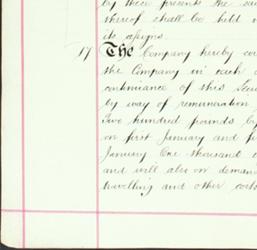 by these presents the
thereof shall be held
its assigns
17 The Company hereby
the Company in each
continuance of this
by way of remuneration
Two hundred pounds
on first January and
January One thousand
and will also on
travelling and other